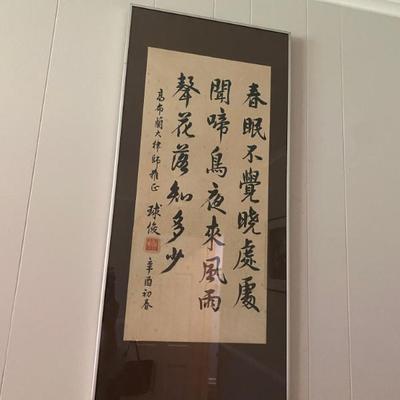 春眠不覺曉處處
聞啼鳥夜來風雨
聲花落知多少
高布蘭大律師雅正 球俊 辛酉初春